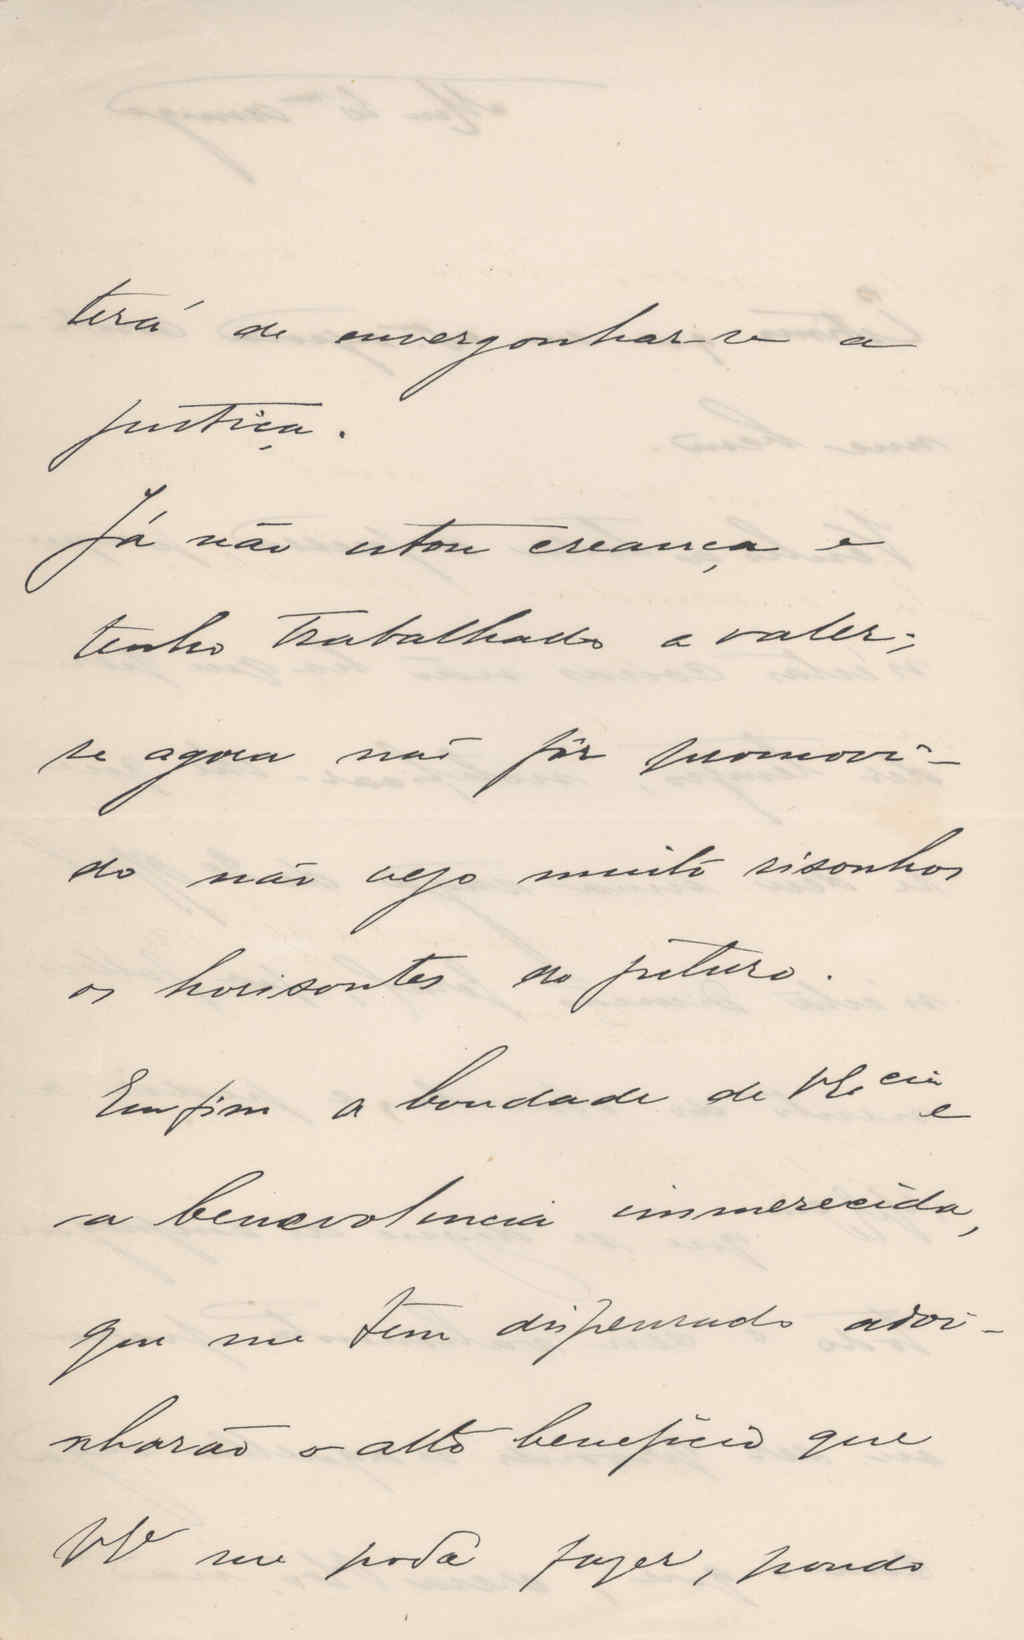 terá de envergonhar-se a
justiça.
Já não estou creança e
tenho trabalhado a valer;
se agora não fôr promovi-
do não vejo muito risonhos
os horisontes do futuro.
Emfim a bondade de VE.cia e
a benevolencia immerecida,
que me tem dispensado advi-
nharão o alto beneficio que
VE.ª me poda fazer, pondo